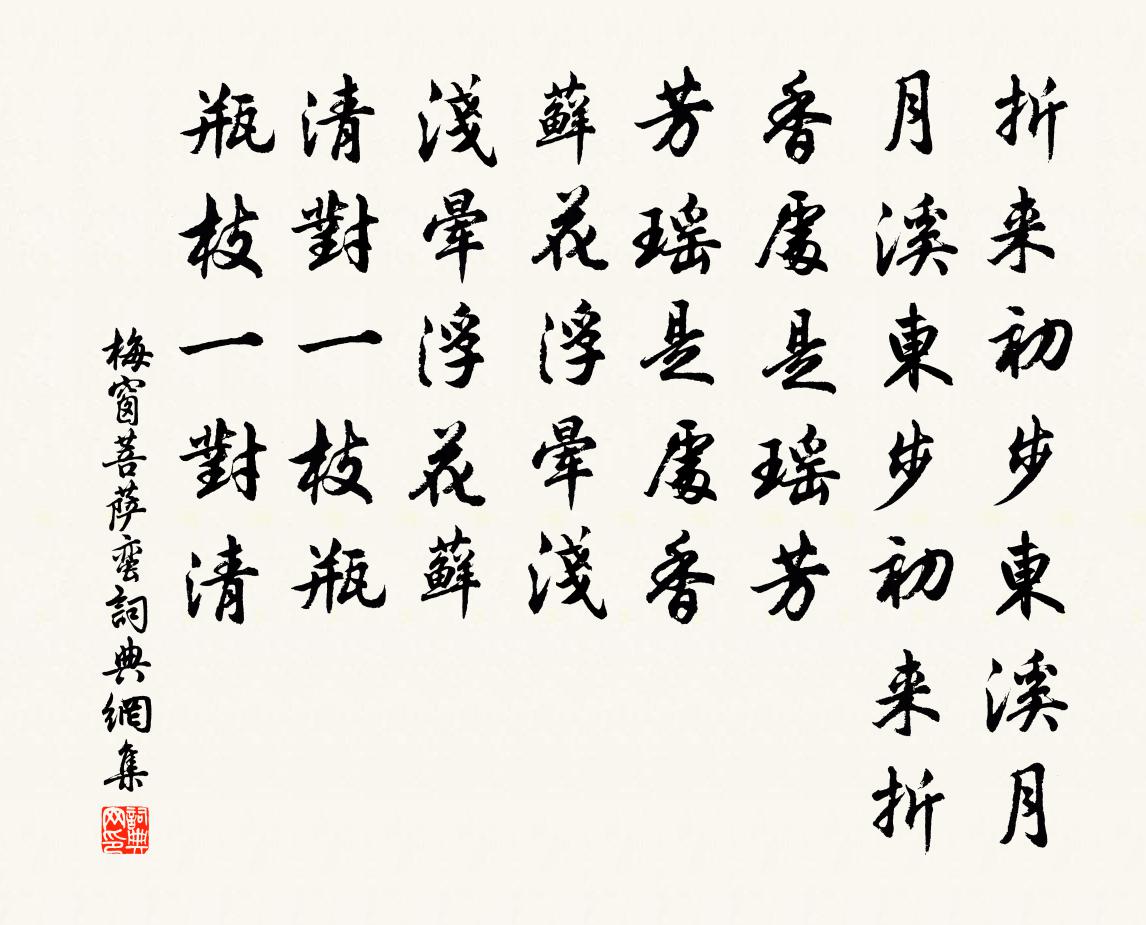 折来初步東溪月
月溪東步初来折
香處是瑶芳
芳瑶是處香
蘚花浮暈淺
淺暈浮花蘚
清對一枝瓶
瓶枝一對清
梅窗菩薩蛮詞典網集
詞典网印